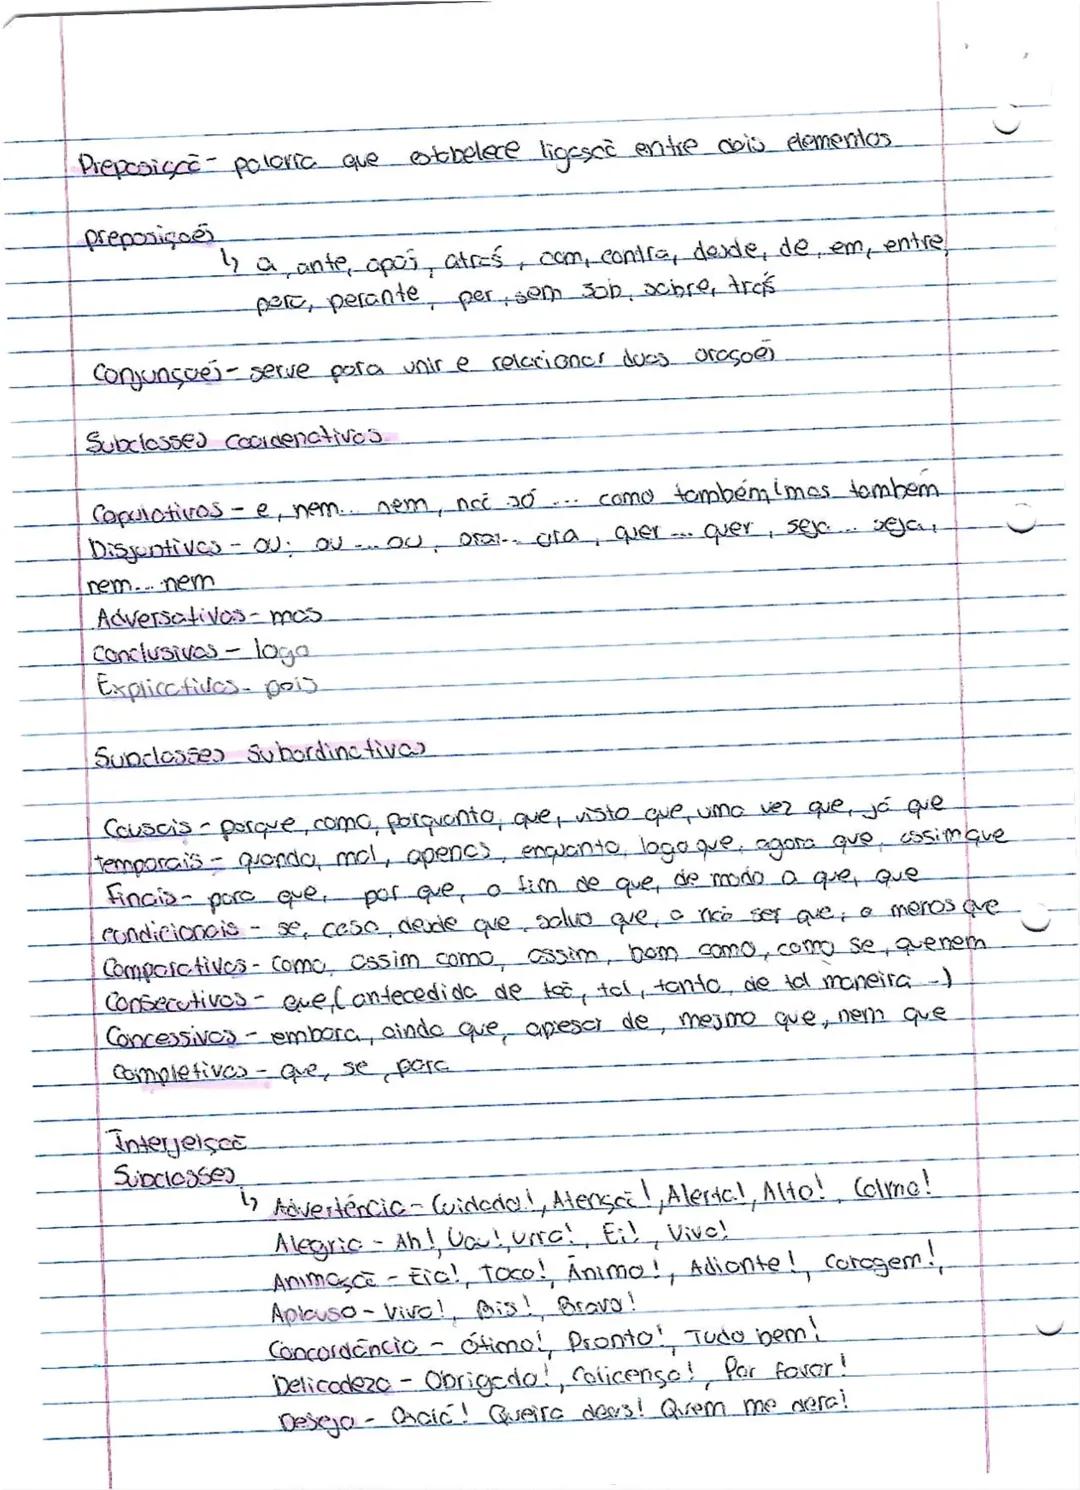 Preposição - palavra que estabelece ligação entre dois elementos
preposições
↳ a, ante, após, atrás, com, contra, desde, de, em, entre,
para, perante, per, sem sob, sobre, trás
Conjunções - serve para unir e relacionar duas orações
Subclasses Coordenativas
Copulativas - e, nem... nem, não só ... como também/mas também
Disjuntivas - ou; ou ... ou, ora... ora, quer ... quer, seja ... seja,
nem... nem
Adversativas - mas
Conclusivas - logo
Explicativas - pois
Subclasses Subordinativas
Causais - porque, como, porquanto, que, visto que, uma vez que, já que
temporais - quando, mal, apenas, enquanto, logo que, agora que, assim que
Finais - para que, por que, a fim de que, de modo a que, que
condicionais - se, caso, desde que, salvo que, a não ser que, a menos que
Comparativas - Como, assim como, assim, bom como, como se, quenem
Consecutivas - que, (antecedida de tão, tal, tanto, de tal maneira -)
Concessivas - embora, ainda que, apesar de, mesmo que, nem que
Completivas - que, se, para
Interjeição
Subclasses
↳ Advertência - Cuidado!, Atenção!, Alerta!, Alto!, Calma!
Alegria - Ah!, Uau!, urra!, Ei!, Viva!
Animação - Eia!, Toca!, Ânimo!, Adiante!, Coragem!,
Aplauso - Viva!, Bis!, Bravo!
Concordância - Ótimo!, Pronto!, Tudo bem!
Delicadeza - Obrigado!, Colicença!, Por favor!
Desejo - Oxalá! Queira deus! Quem me dera!